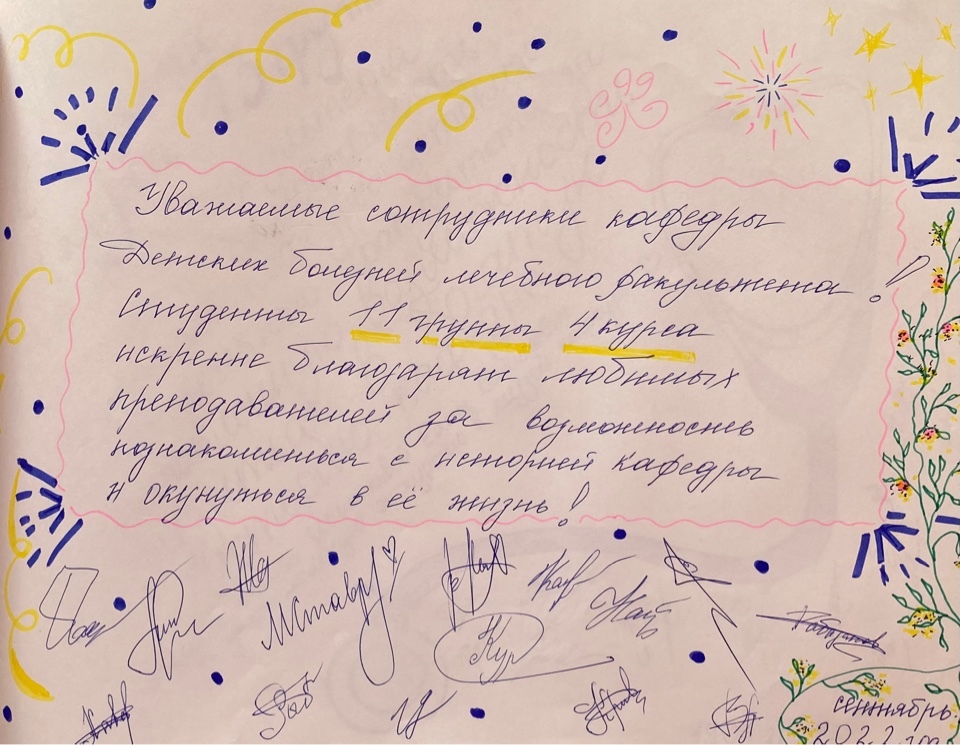 Уважаемые сотрудники кафедры
Детских болезней лечебного факультета!
Студенты 11 группы 4 курса
искренне благодарят любимых
преподавателей за возможность
познакомиться с историей кафедры
и окунуться в её жизнь!
сентябрь